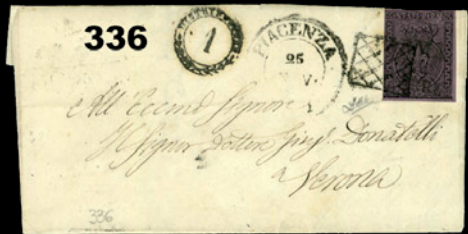 336
1
PIACENZA
25
All' Eccmo Signore
Il Signor Dottore Giusẹ Donatelli
a Verona
336